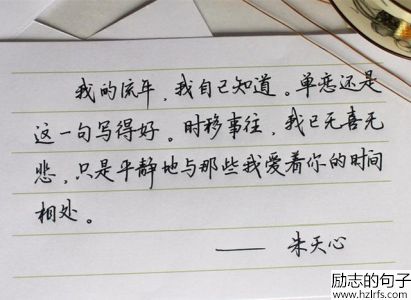 我的流年，我自己知道。单恋还是
这一句写得好。时移事往，我已无喜无
悲，只是平静地与那些我爱着你的时间
相处。
—— 朱天心
励志的句子
www.hzlrfs.com